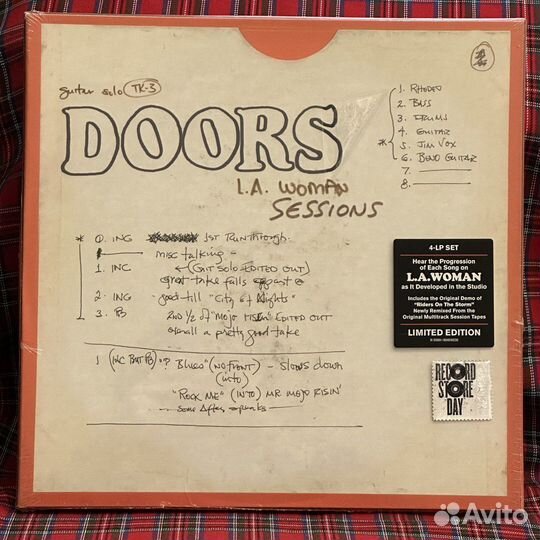 guitar solo TK-3
DOORS
L.A. WOMAN
SESSIONS
1. RHODES
2. BASS
3. DRUMS
4. GUITAR
* 5. JIM VOX
6. BEND GUITAR
7.
8.
* 0. ING 1ST RUNTHROUGH.
misc talking -
1. INC (GIT SOLO EDITED OUT)
great take falls apart @
2. ING good till "City of Nights"
3. 2ND 1/2 OF "MOJO RISIN" EDITED OUT
small a pretty good take
1 (INC BUT) "? Blues" (NO FRONT) - Slows down
(INTO)
"ROCK ME" (INTO) MR MOJO RISIN'
Some After
4-LP SET
Hear the Progression
of Each Song on
L.A.WOMAN
as It Developed in the Studio
Includes the Original Demo of
"Riders On The Storm"
Newly Remixed From the
Original Multitrack Session Tapes
LIMITED EDITION
RECORD
STORE
DAY
Avito